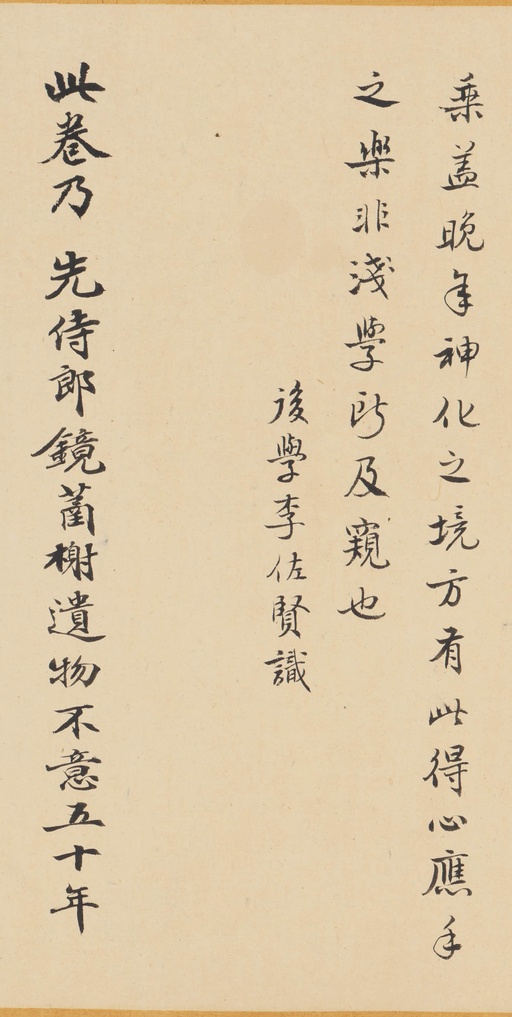 乘蓋晚年神化之境方有此得心應手
之樂非淺學所及窺也
後學李佐賢識
此卷乃 先侍郎鏡菌榭遺物不意五十年